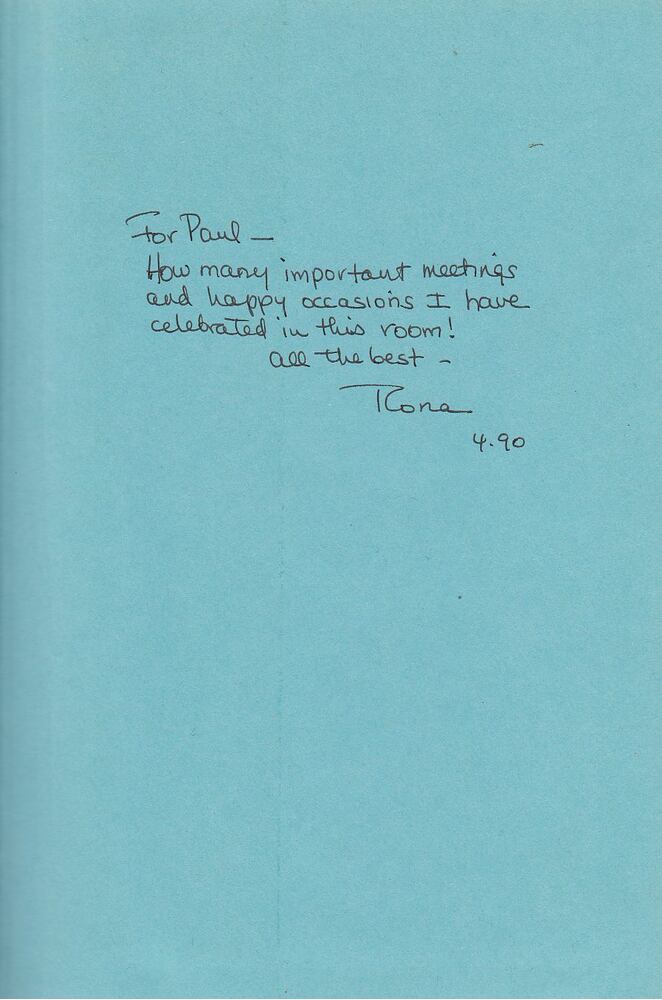 For Paul —
How many important meetings
and happy occasions I have
celebrated in this room!
all the best –
Rona
4.90